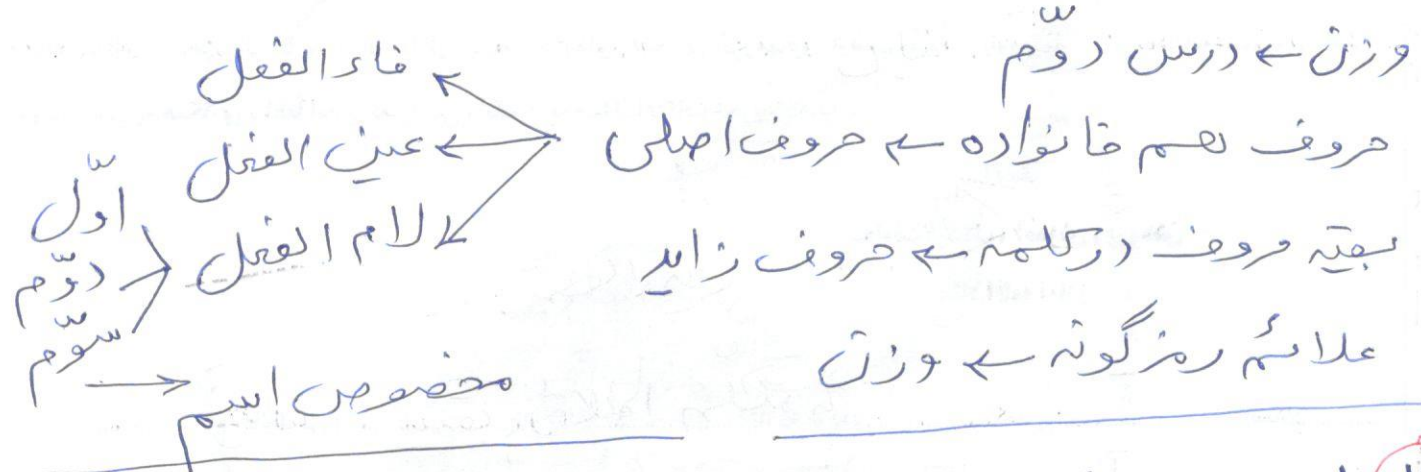 وزن ← درس دوّم
حروف هم خانواده ← حروف اصلی
فاء الفعل
عین الفعل
لام الفعل
اوّل
دوّم
سوّم
بقیّه حروف در کلمه ← حروف زاید
علائم رمزگونه ← وزن
مخصوص اسم